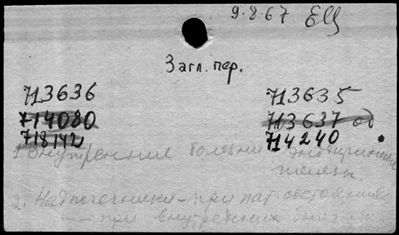 9.8.67 ЕЦ
Загл. пер.
713636 713635
714080 713637 од
718142 714240
1 Внутренние болезни эндокринные
железы.
2. Надпочечники – при пат. состояниях
– при внутренних болезнях